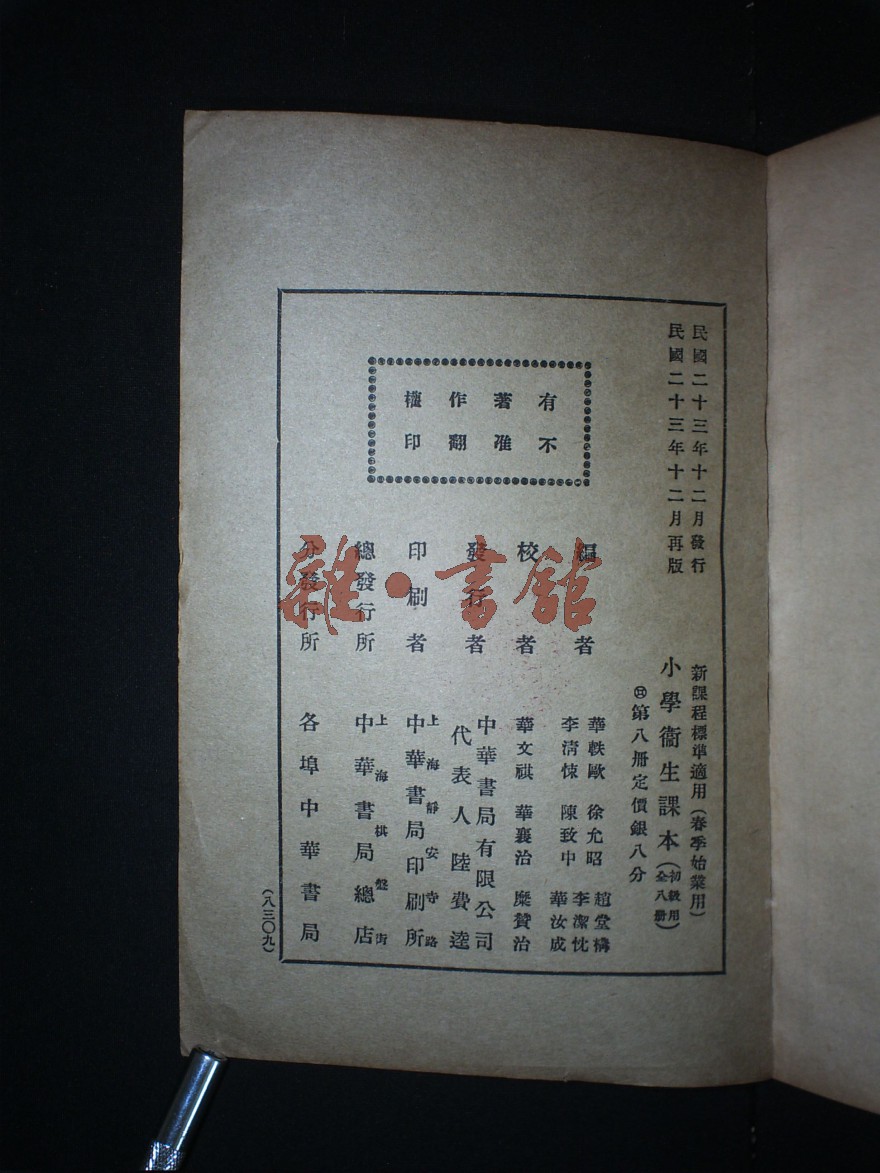 民國二十三年十二月發行
民國二十三年十二月再版
新課程標準適用(春季始業用)
小學衞生課本(初級用全八冊)
第八冊定價銀八分
有著作權
不准翻印
編者
華軼歐 徐允昭 趙堂構
李清悚 陳致中 李潔忱
華汝成
校者
華文祺 華襄治 糜贊治
發行者
中華書局有限公司
代表人 陸費逵
印刷者
上海靜安寺路
中華書局印刷所
總發行所
上海棋盤街
中華書局總店
分發行所
各埠中華書局
(八三〇九)
雜·書館